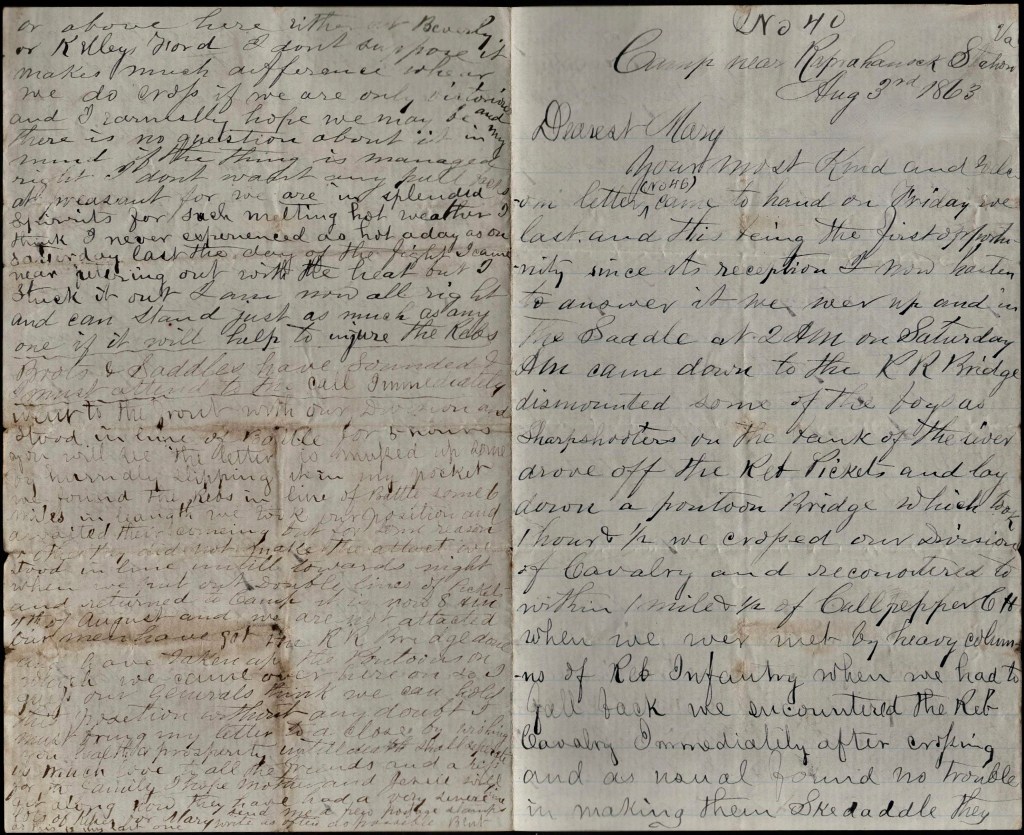 No 40
Va
Camp near Rapahanock Station
Aug 3rd 1863
Dearest Mary
Your most Kind and welc-
-om letter (No 46) came to hand on Friday
last. and this being the first opportu-
-nity since its reception I now hasten
to answer it we wer up and in
the Saddle at 2 AM on Saturday
AM came down to the R R Bridge
dismounted some of the boys as
Sharpshooters on the bank of the river
drove off the Reb Pickets and lay
down a pontoon Bridge which took
1 hour & 1/2 we crosed our Division
of Cavalry and reconoitered to
within 1 mile & 1/2 of Callpepper C H
when we wer met by heavy colum-
-ns of Reb Infantry when we had to
fall back we encountered the Reb
Cavalry Immediatily after crosing
and as usual found no trouble
in making them Skedaddle they
or above here either at Beverly
or Kelleys Ford I dont suppose it
makes much difference whear
we do cross if we are only victorious
and I earnestly hope we may be and
there is no question about it in my
mind if the thing is managed
right I dont want any
at we are in splendid
Spirits for such melting hot weather I
think I never experienced as hot a day as on
Saturday last the day of the fight I came
near giving out with the heat but I
Stuck it out I am now all right
and can stand just as much as any
one if it will help to injure the Rebs
Boots & Saddles have Sounded I
must attend to the call Immediatily
went to the front with our Division and
stood in line of Battle for 5 hours
you will see the letter is mused up some
by hurridly slipping it in my pocket
we found the Rebs in line of Battle some 6
miles in length we took our position and
awaited their coming but for some reason
or other they did not make the attact we
stood in line untill towards night
when we put out double lines of Pickets
and returned to Camp it is now 8 AM
4th of August and we are not attacted
our men have got the R R Bridge done
and have taken up the Pontoons on
which we came over here on so I
guess our Generals think we can hold
this position without any doubt I
must bring my letter to a close by wishing
you health & prosperity untill death shall
much love to all the friends and a
for the family I hope Mother and will
get along now they have had a very severe
Mary send me a few postage stamps
as this is my last one write as often as possible